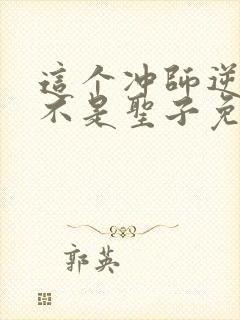 這个冲師逆
不是聖子免
郭英